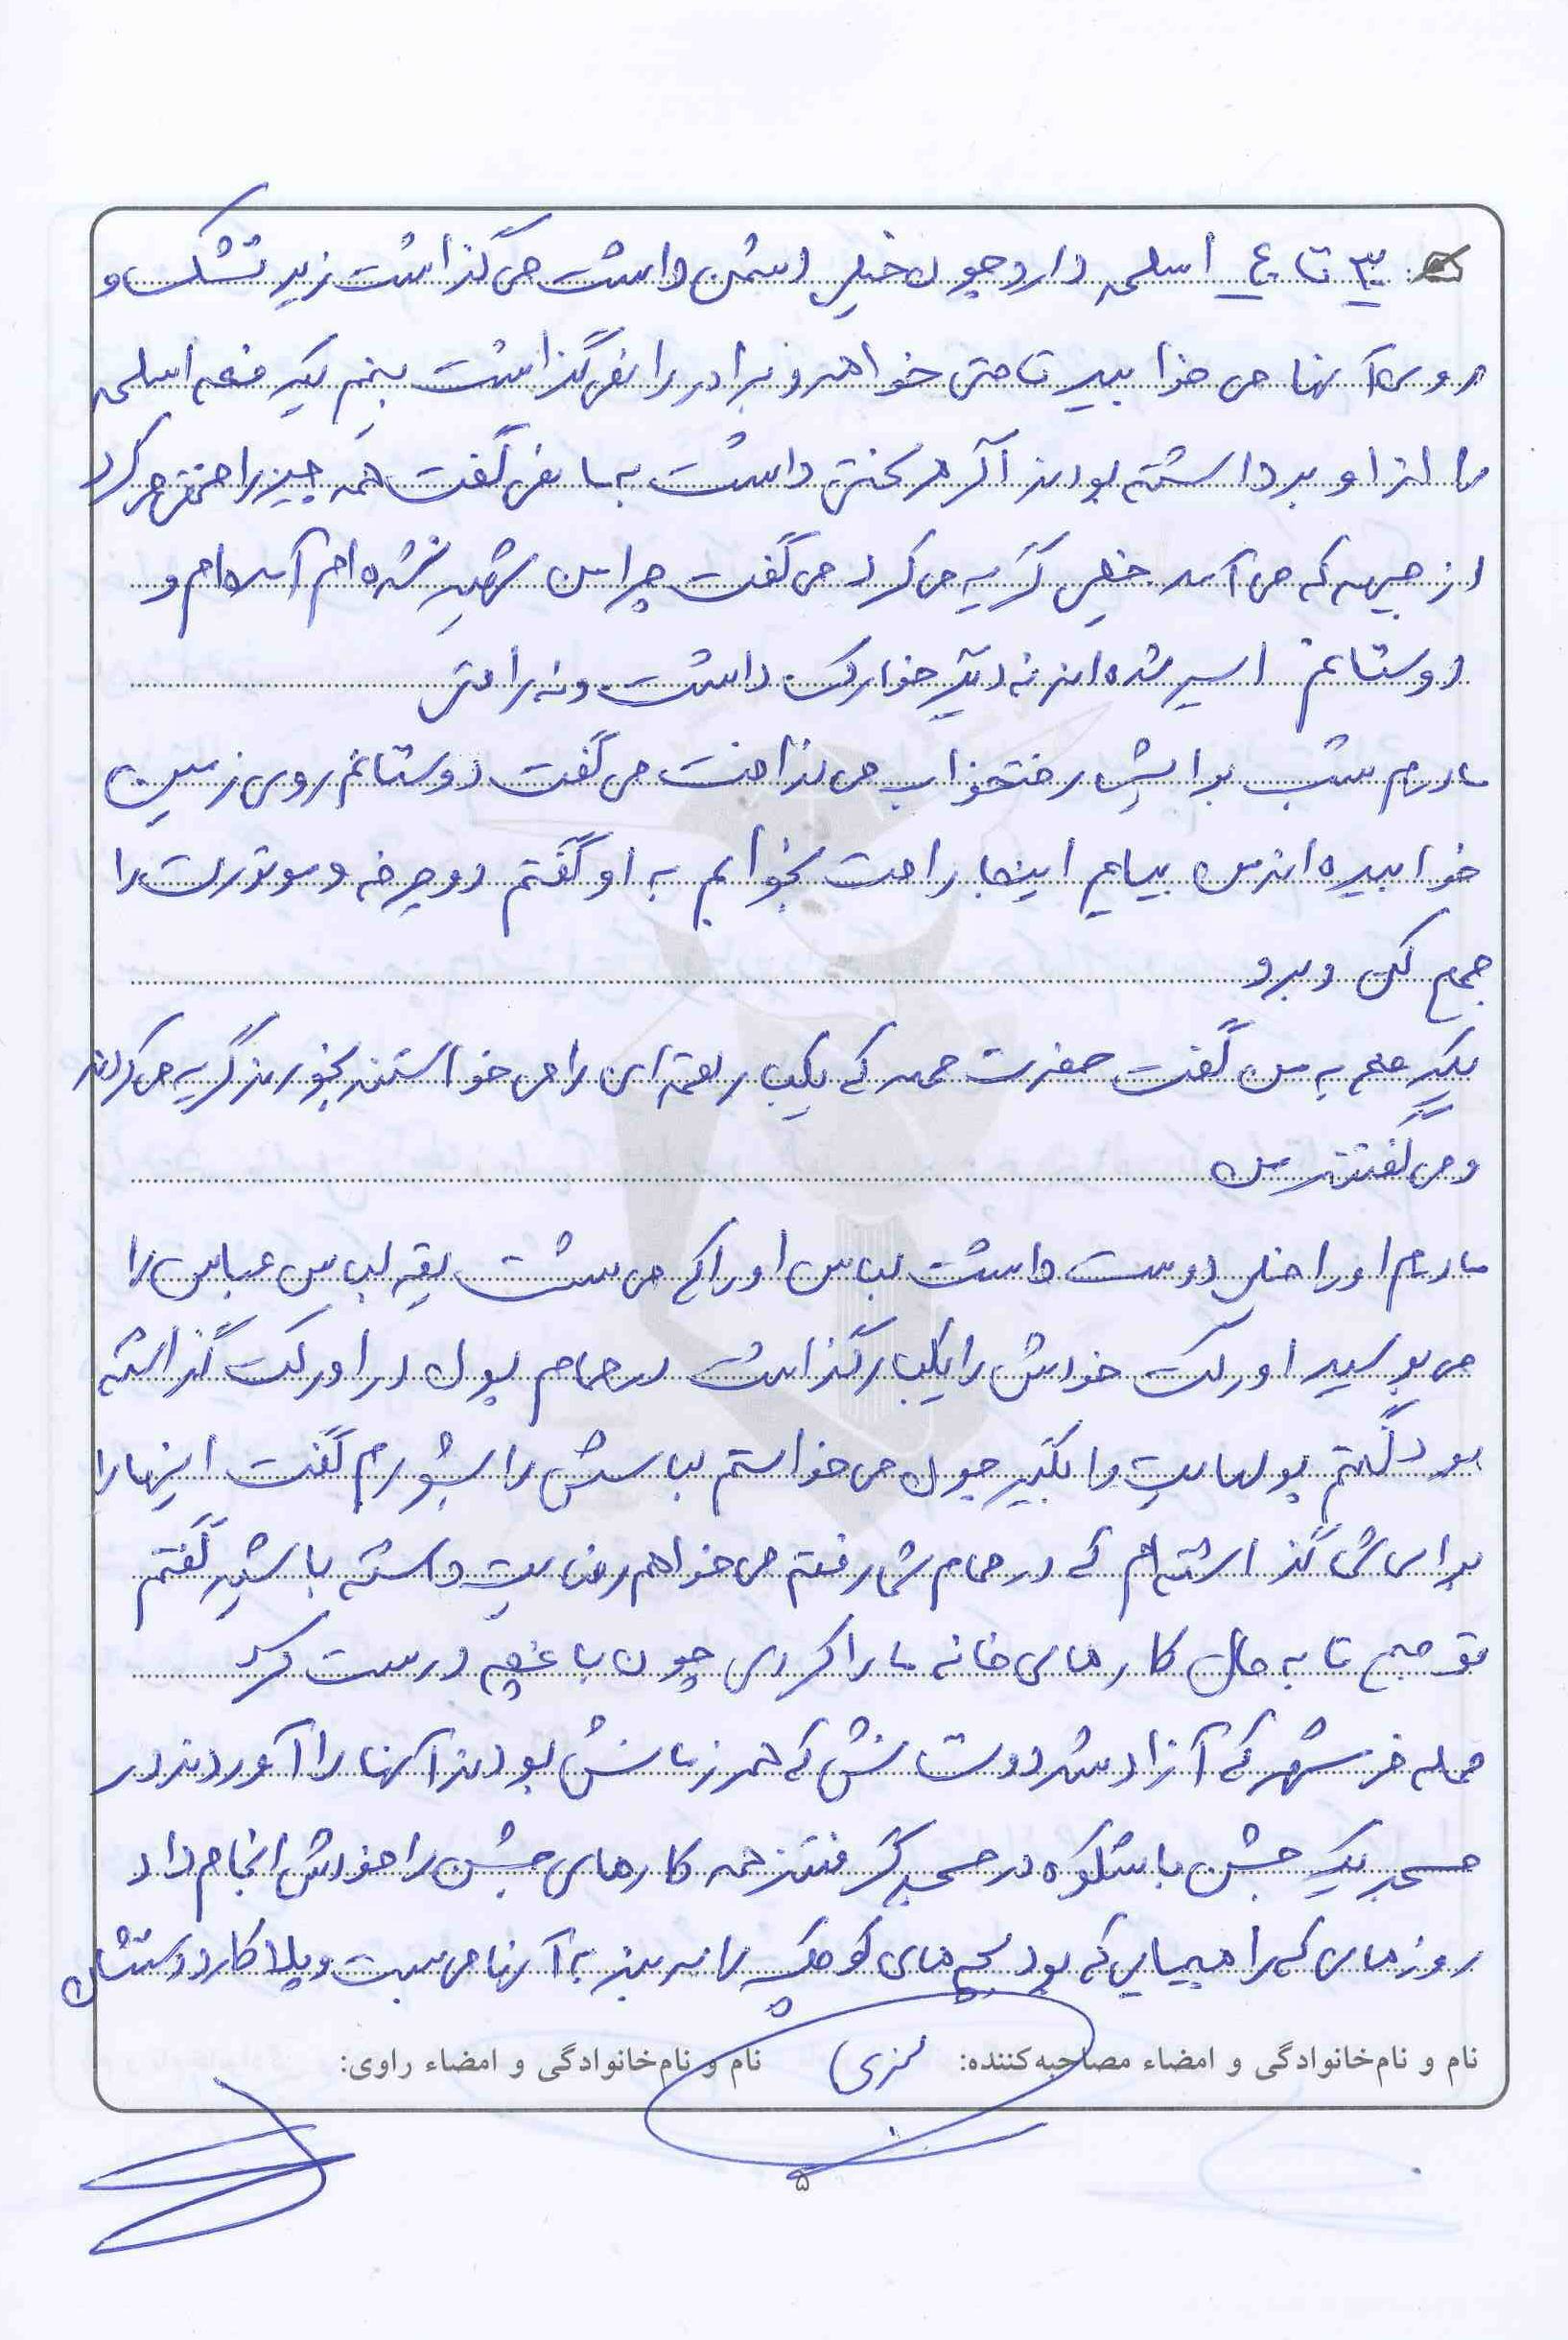 ۳ تا ٤ اسلحه دارد چون خیلی دشمن داشت می گذاشت زیر تشک و
روی آنها می خوابید تا حتی خواهر و برادر را نمی گذاشت بفهم یک دفعه اسلحه
را از او برداشته بودند اگر هر سختی داشت به ما نمی گفت همه چیز را مخفی می کرد
از جبهه که می آمد خیلی گریه می کرد می گفت چرا من شهید نشده ام آمده ام و
دوستانم اسیر شده اند نه دیگر خوارک داشت و نه راحتی
مادرم شب برایش رختخواب می نداخت می گفت دوستانم روی زمین
خوابیده اند من بیایم اینجا راحت بخوابم به او گفتم دوچرخه و موتورت را
جمع کن و برو
یک به من گفت حضرت محمد که یکبار لقمه ای را می خواستند بخورند گریه می کردند
و می گفتند من
مادرم او را خیلی دوست داشت لباس او را که می شست یقه لباس عباس را
می بوسید اورکت خودش را یکبار گذاشت در حمام پول در اورکت گذاشته
بود گفتم پولهایت را بگیر چون می خواستم لباسش را بشورم گفت اینها را
برای شما گذاشته ام که در حمام شما رفتم می خواهم رضایت داشته باشید گفتم
تو صبح تا به حال کارهای خانه ما را کردی چون باغچه درست کرد
حمله خرمشهر که آزاد شد دوستانش که همرزمانش بودند آنها را آوردند در
مسجد یک جشن باشکوه در مسجد گرفتند همه کارهای جشن را خودش انجام داد
روزهای که راهپیمایی که بود بچه های کوچک را سربند به آنها می بست و پلاکارد دستشان
نام و نام‌خانوادگی و امضاء مصاحبه‌کننده:
نام و نام‌خانوادگی و امضاء راوی:
۵